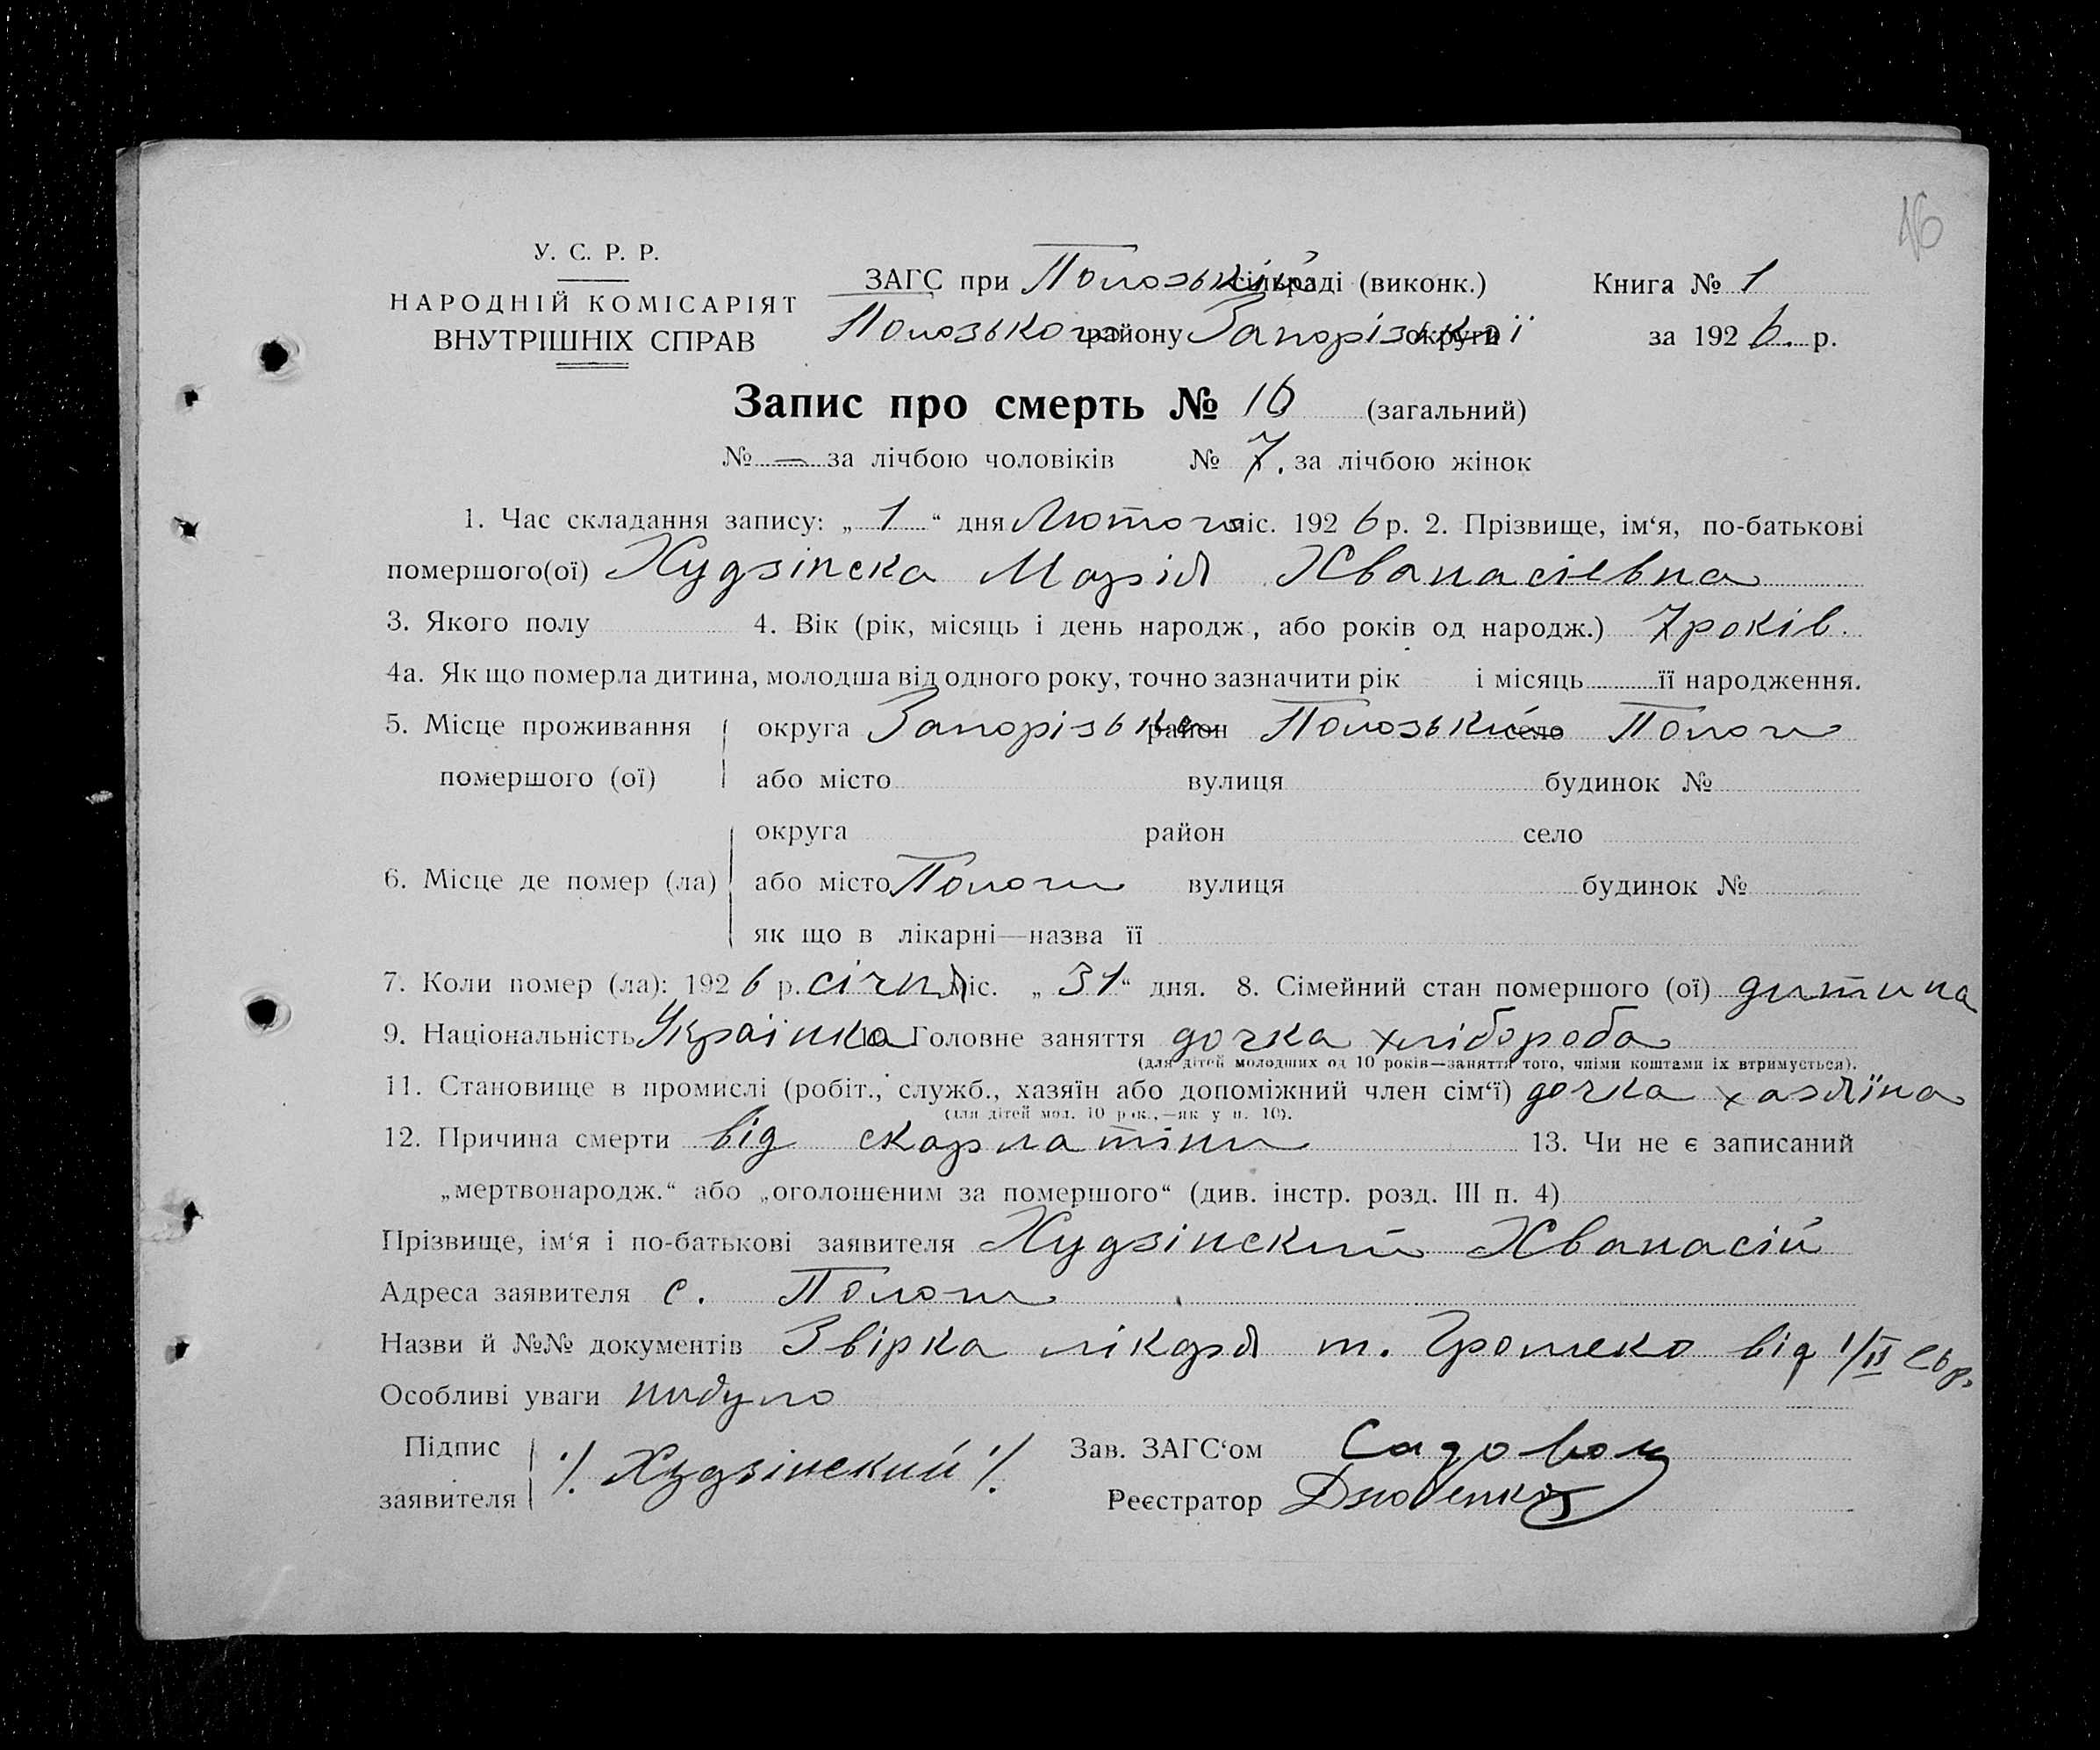 16
У. С. Р. Р.
НАРОДНІЙ КОМІСАРІЯТ
ВНУТРІШНІХ СПРАВ
ЗАГС при Полозький сільраді (виконк.)
Полозького району Запорізької округи
Книга № 1
за 1926. р.
Запис про смерть № 16 (загальний)
№ — за лічбою чоловіків № 7. за лічбою жінок
1. Час складання запису: „ 1 “ дня Лютого міс. 1926 р. 2. Прізвище, ім‘я, по-батькові
помершого(ої) Худзінска Марія Хванасієвна
3. Якого полу 4. Вік (рік, місяць і день народж, або років од народж.) 7 років.
4а. Як що померла дитина, молодша від одного року, точно зазначити рік і місяць її народження.
5. Місце проживання округа Запорізька район Полозький село Пологи
помершого (ої) або місто вулиця будинок №
округа район село
6. Місце де помер (ла) або місто Пологи вулиця будинок №
як що в лікарні—назва її
7. Коли помер (ла): 1926 р. січня міс. „ 31 “ дня. 8. Сімейний стан помершого (ої) дитина
9. Національність Українка 10. Головне заняття дочка хлібороба
(для дітей молодших од 10 років—заняття того, чиїми коштами їх втримується).
11. Становище в промислі (робіт., служб., хазяїн або допоміжний член сім‘ї) дочка хазяїна
(для дітей мол. 10 рок.,—як у п. 10).
12. Причина смерти від скарлатіни 13. Чи не є записаний
„мертвонародж.“ або „оголошеним за помершого“ (див. інстр. розд. III п. 4)
Прізвище, ім‘я і по-батькові заявителя Худзінский Хванасій
Адреса заявителя с. Пологи
Назви й №№ документів Звірка лікаря т. Громеко від 1/II 26 р.
Особливі уваги небуло
Підпис ./. Худзінский ./. Зав. ЗАГС‘ом
заявителя Реєстратор